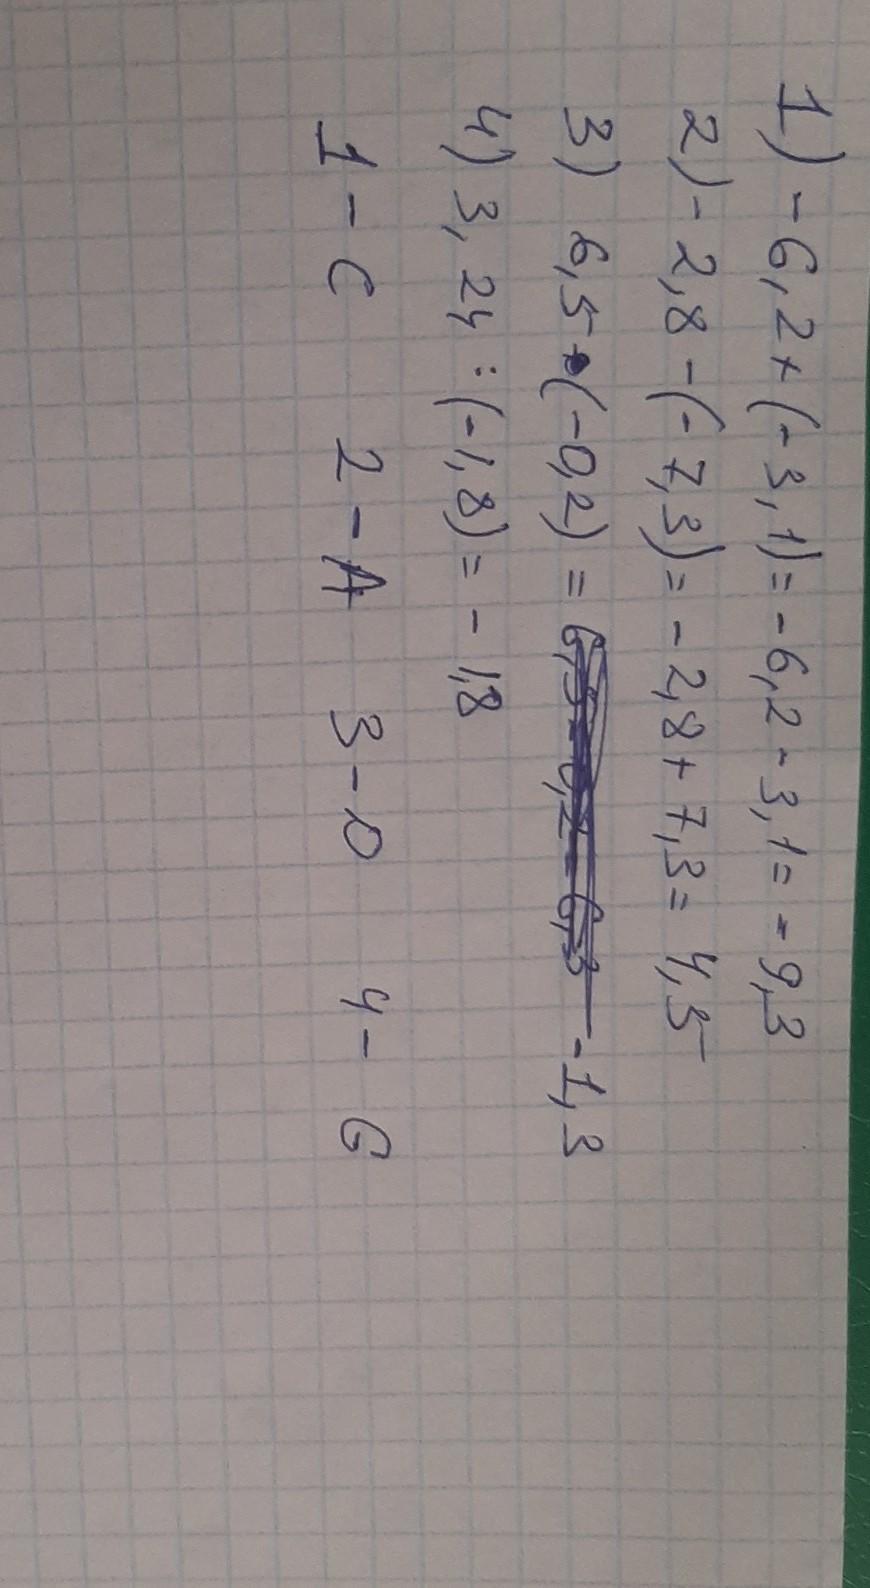 1) -6,2+(-3,1)=-6,2-3,1=-9,3
2) -2,8-(-7,3)=-2,8+7,3=4,5
3) 6,5•(-0,2)=-1,3
4) 3,24:(-1,8)=-1,8
1-C 2-A 3-D 4-G